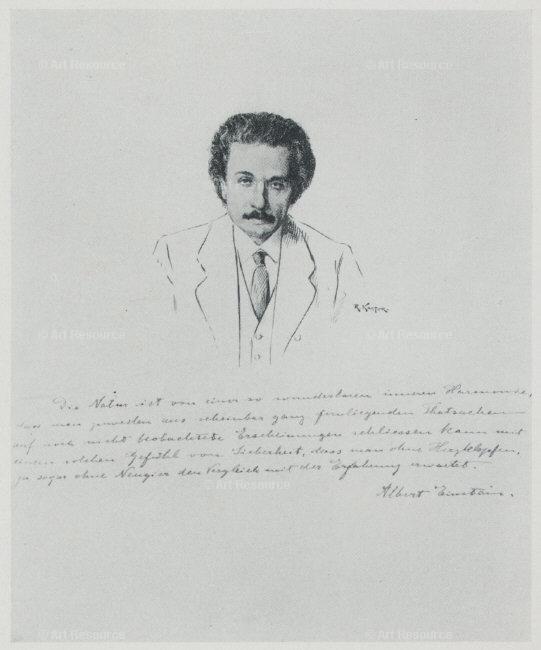 © Art Resource © Art Resource
© Art Resource © Art Resource
Die Natur ist von einer so wunderbaren inneren Harmonie,
dass man zuweilen aus scheinbar ganz fernliegenden Thatsachen
auf noch nicht beobachtete Erscheinungen schliessen kann mit
einem solchen Gefühl von Sicherheit, dass man ohne Herzklopfen,
ja sogar ohne Neugier den Vergleich mit der Erfahrung erwartet.
© Art Resource
Albert Einstein.
© Art Resource © Art Resource